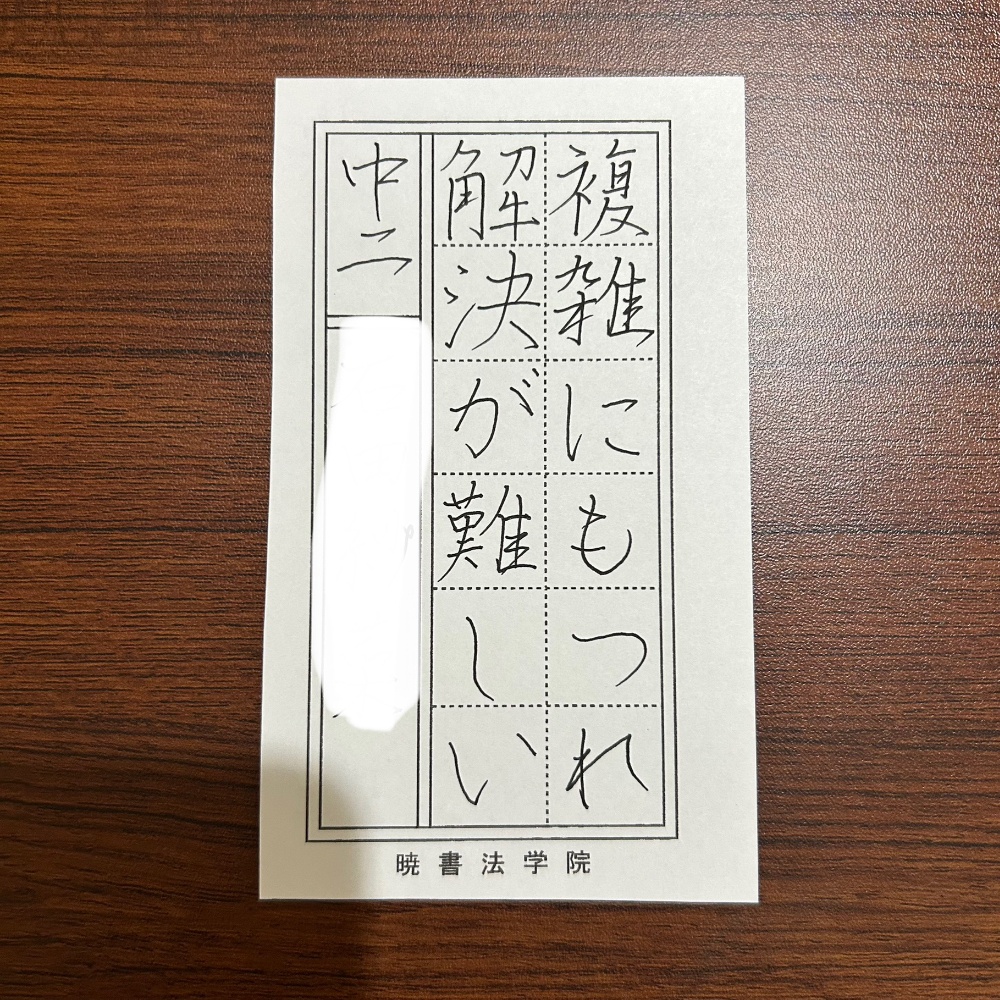 複雑にもつれ
解決が難しい
中二
暁書法学院